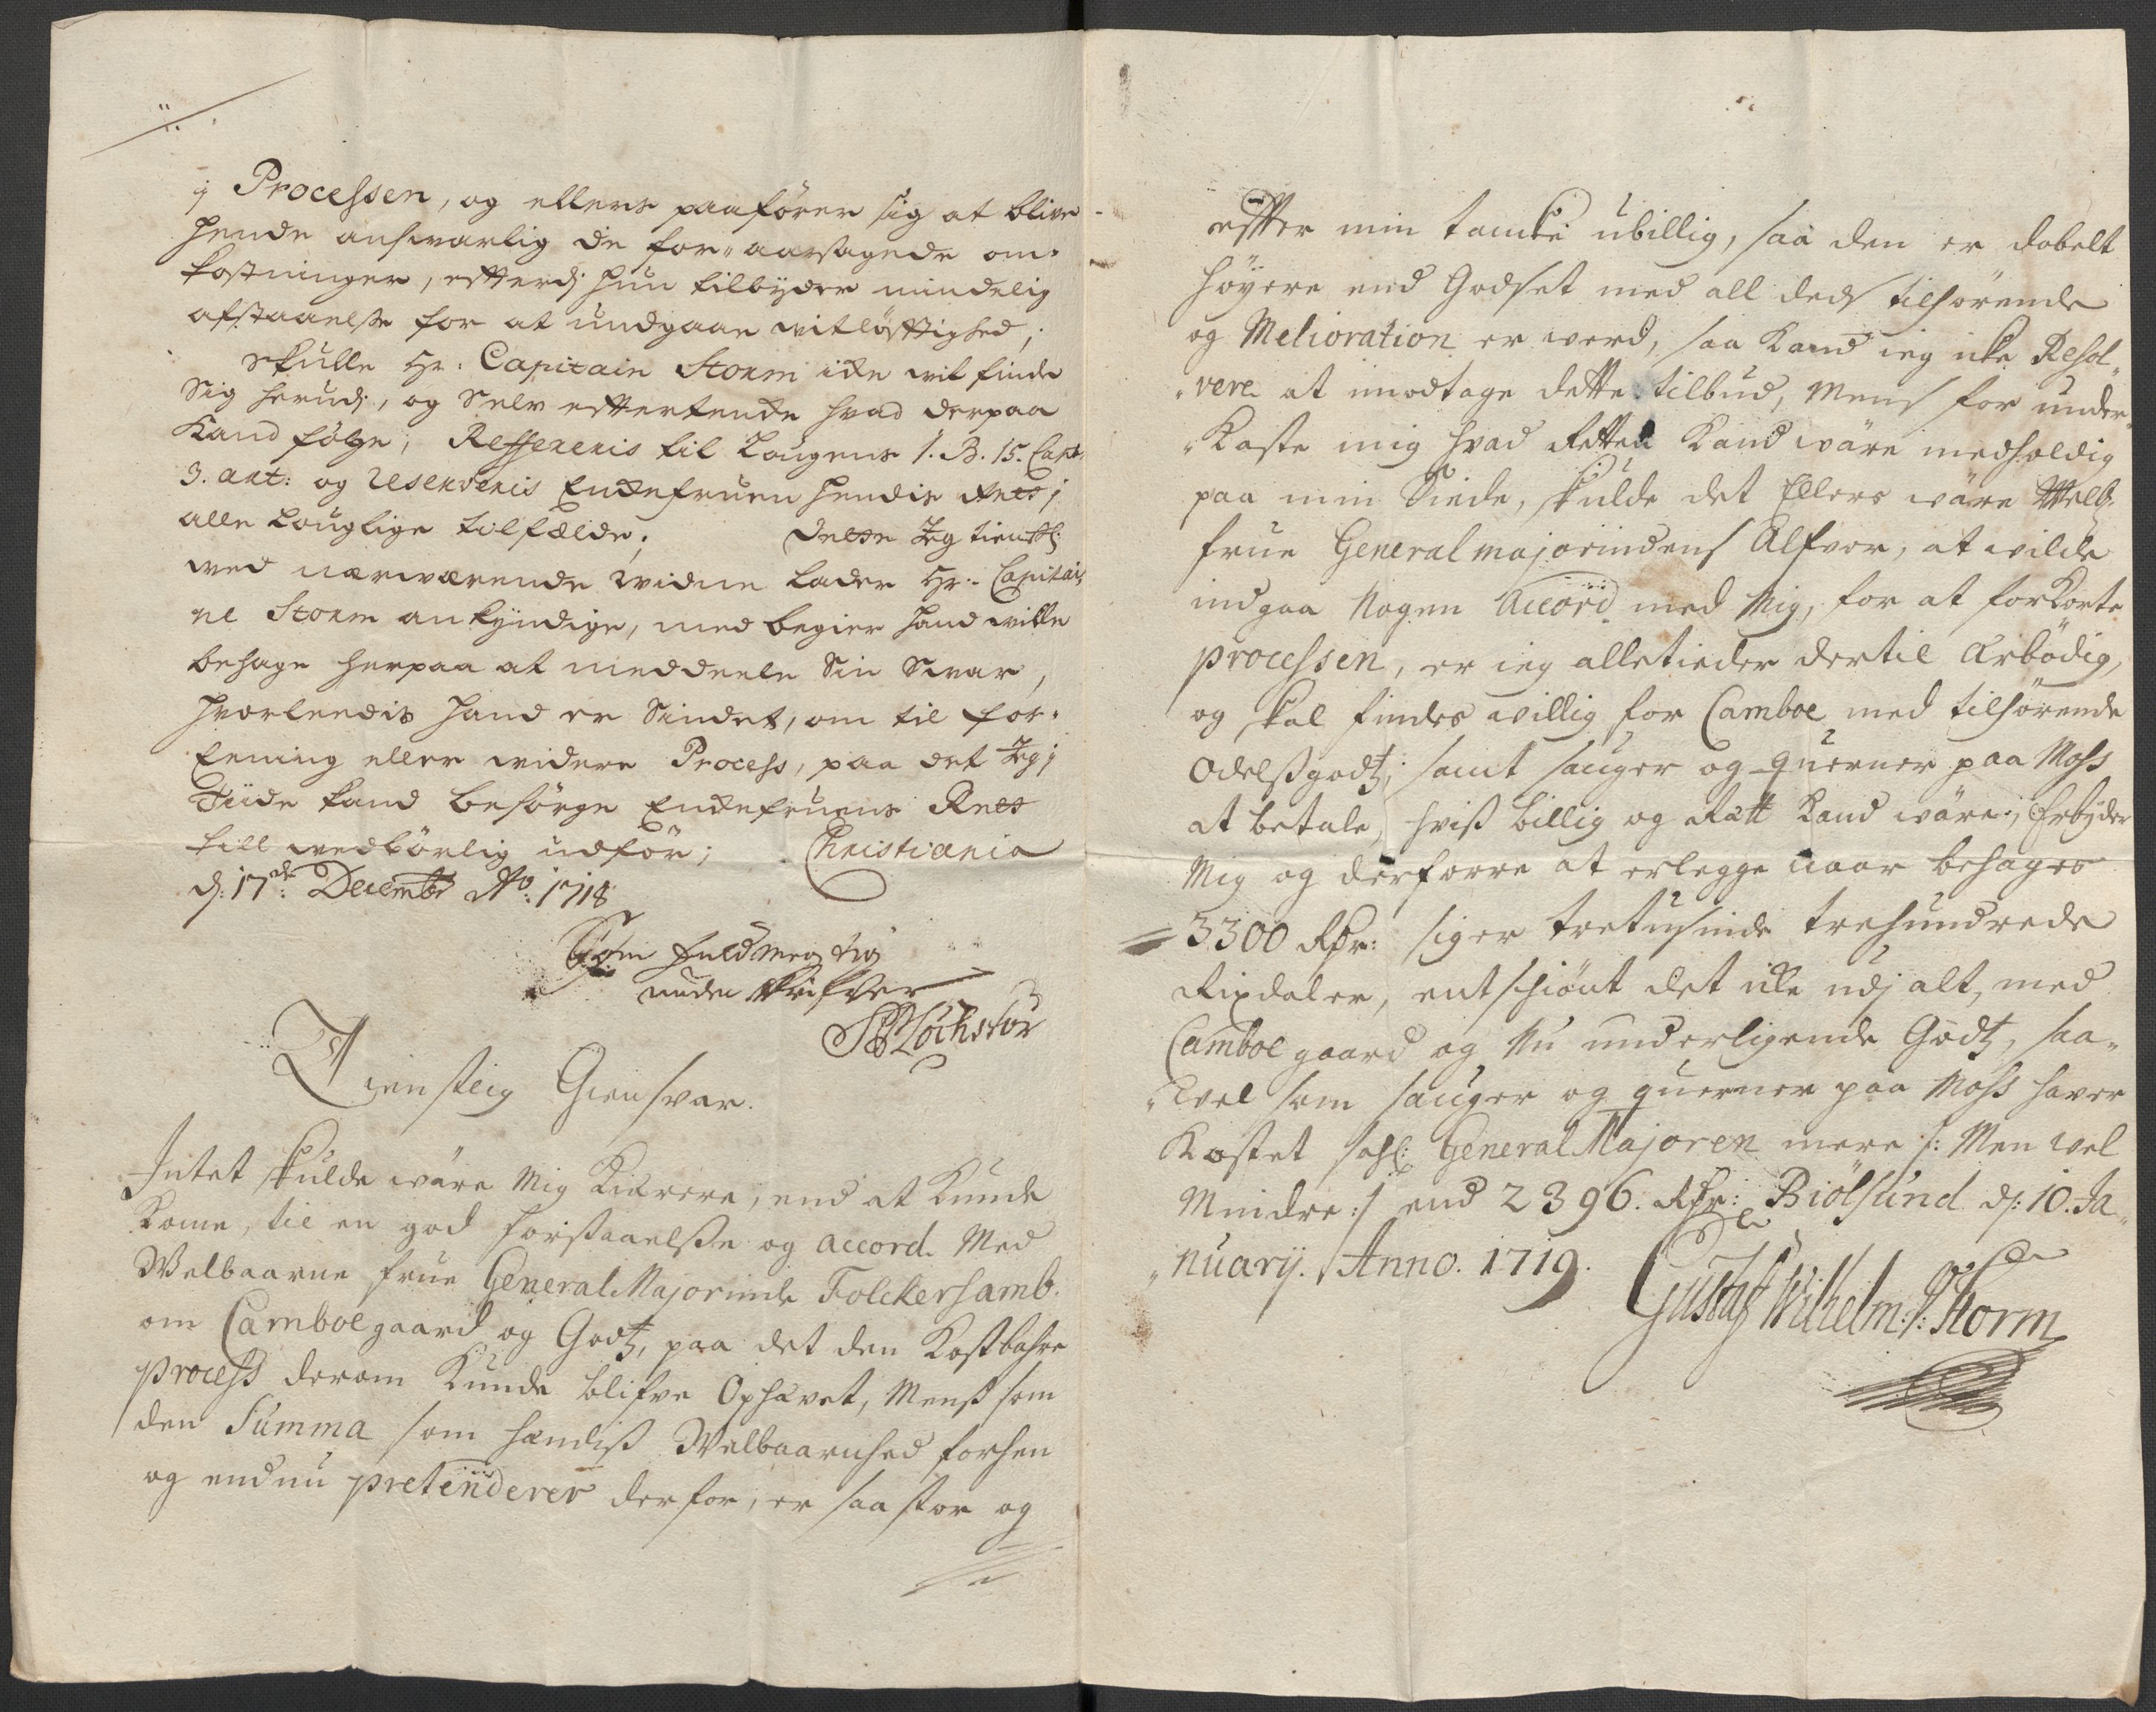 j Processen, og ellers paafører sig at blive
hende ansvarlig de for-aarsagede om-
kostninger, efterdj hun tilbyder mindelig
afstaaelse for at undgaae vitløftighed;
Skulle Hr: Capitain Storm icke vil finde
Sig herudj, og Selv eftertencke hvad derpaa
Kand følge; Refereris til Lougens 1. B. 15. Capt:
3. art: og reserveris Enckefruen hendis Rett j
alle Louglige tilfælde; Dette Jeg tienstl:
ved nærværende Vidne lader Hr: Capitai-
ne Storm ankyndige, med begier hand ville
behage herpaa at meddeele Sin Svar,
hvorleedis hand er Sindet, om til for-
Eening eller videre Process, paa det Jeg j
Tiide kand besørge Enckefruens Rett
till vedbørlig udfør; Christiania
d: 17de Decembr Ao: 1718
Som fuldmegtig
under skrifver
Tienstlig Giensvar.
Intet skulde wäre Mig Kierere, end at Kunde
Kome, til en god forstaaelsse og accord. Med
Welbaarne frue General Majorinde Folckersamb.
om Camboe gaard og Godtz, paa det den Kostbahre
process derom Kunde blifve Ophævet, Menss som
den Summa som hændiss Welbaarnhed forhen
og endnu pretenderer derfor, er saa stor og
efter min tancke ubillig, saa den er dobelt
høyere end Godset med all deds tilhørende
og Melioration er werd, saa Kand ieg icke Resol-
-vere at imodtage dette tilbud, Mens for under-
-Kaste mig hvad Retten Kand wäre medholdig
paa min Siide, skulde det Ellers wäre Welb:
frue Generalmajorindens Alfvor, at wilde
indgaa Nogen Accord med Mig, for at forkorte
processen, er ieg alletieder dertil Ærbødig,
og skal findes willig for Camboe med tilhørende
Odelssgodtz, samt sauger og querner paa Moss
at betale, hviss billig og Rætt Kand wäre; Erbyder
Mig og derforre at erlegge naar behages
3300 Rdr: siger tretusinde trehundrede
Rixdaler, entschiønt det icke udj alt, med
Camboe gaard og Nu underligende Godtz, saa-
-wel som sauger og querner paa Moss haver
Kostet sahl: General Majoren mere /: Men wel
Mindre :/ end 2396. Rdr: Biølsund d: 10. Ja-
-nuarij. Anno. 1719.
Gustaf Wilhelm: V: Storm